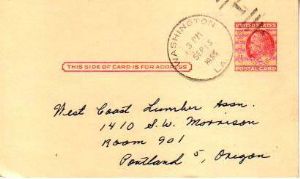 WASHINGTON
3 PM
SEP 15
LA.
UNITED STATES
POSTAL CARD
THIS SIDE OF CARD IS FOR ADDRESS
West Coast Lumber Assn.
1410 S.W. Morrison
Room 901
Portland 5, Oregon